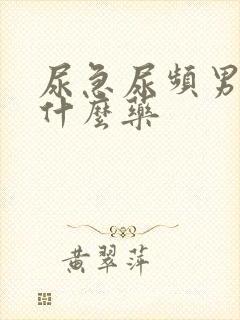 尿急尿頻男
什麼藥
黄翠萍